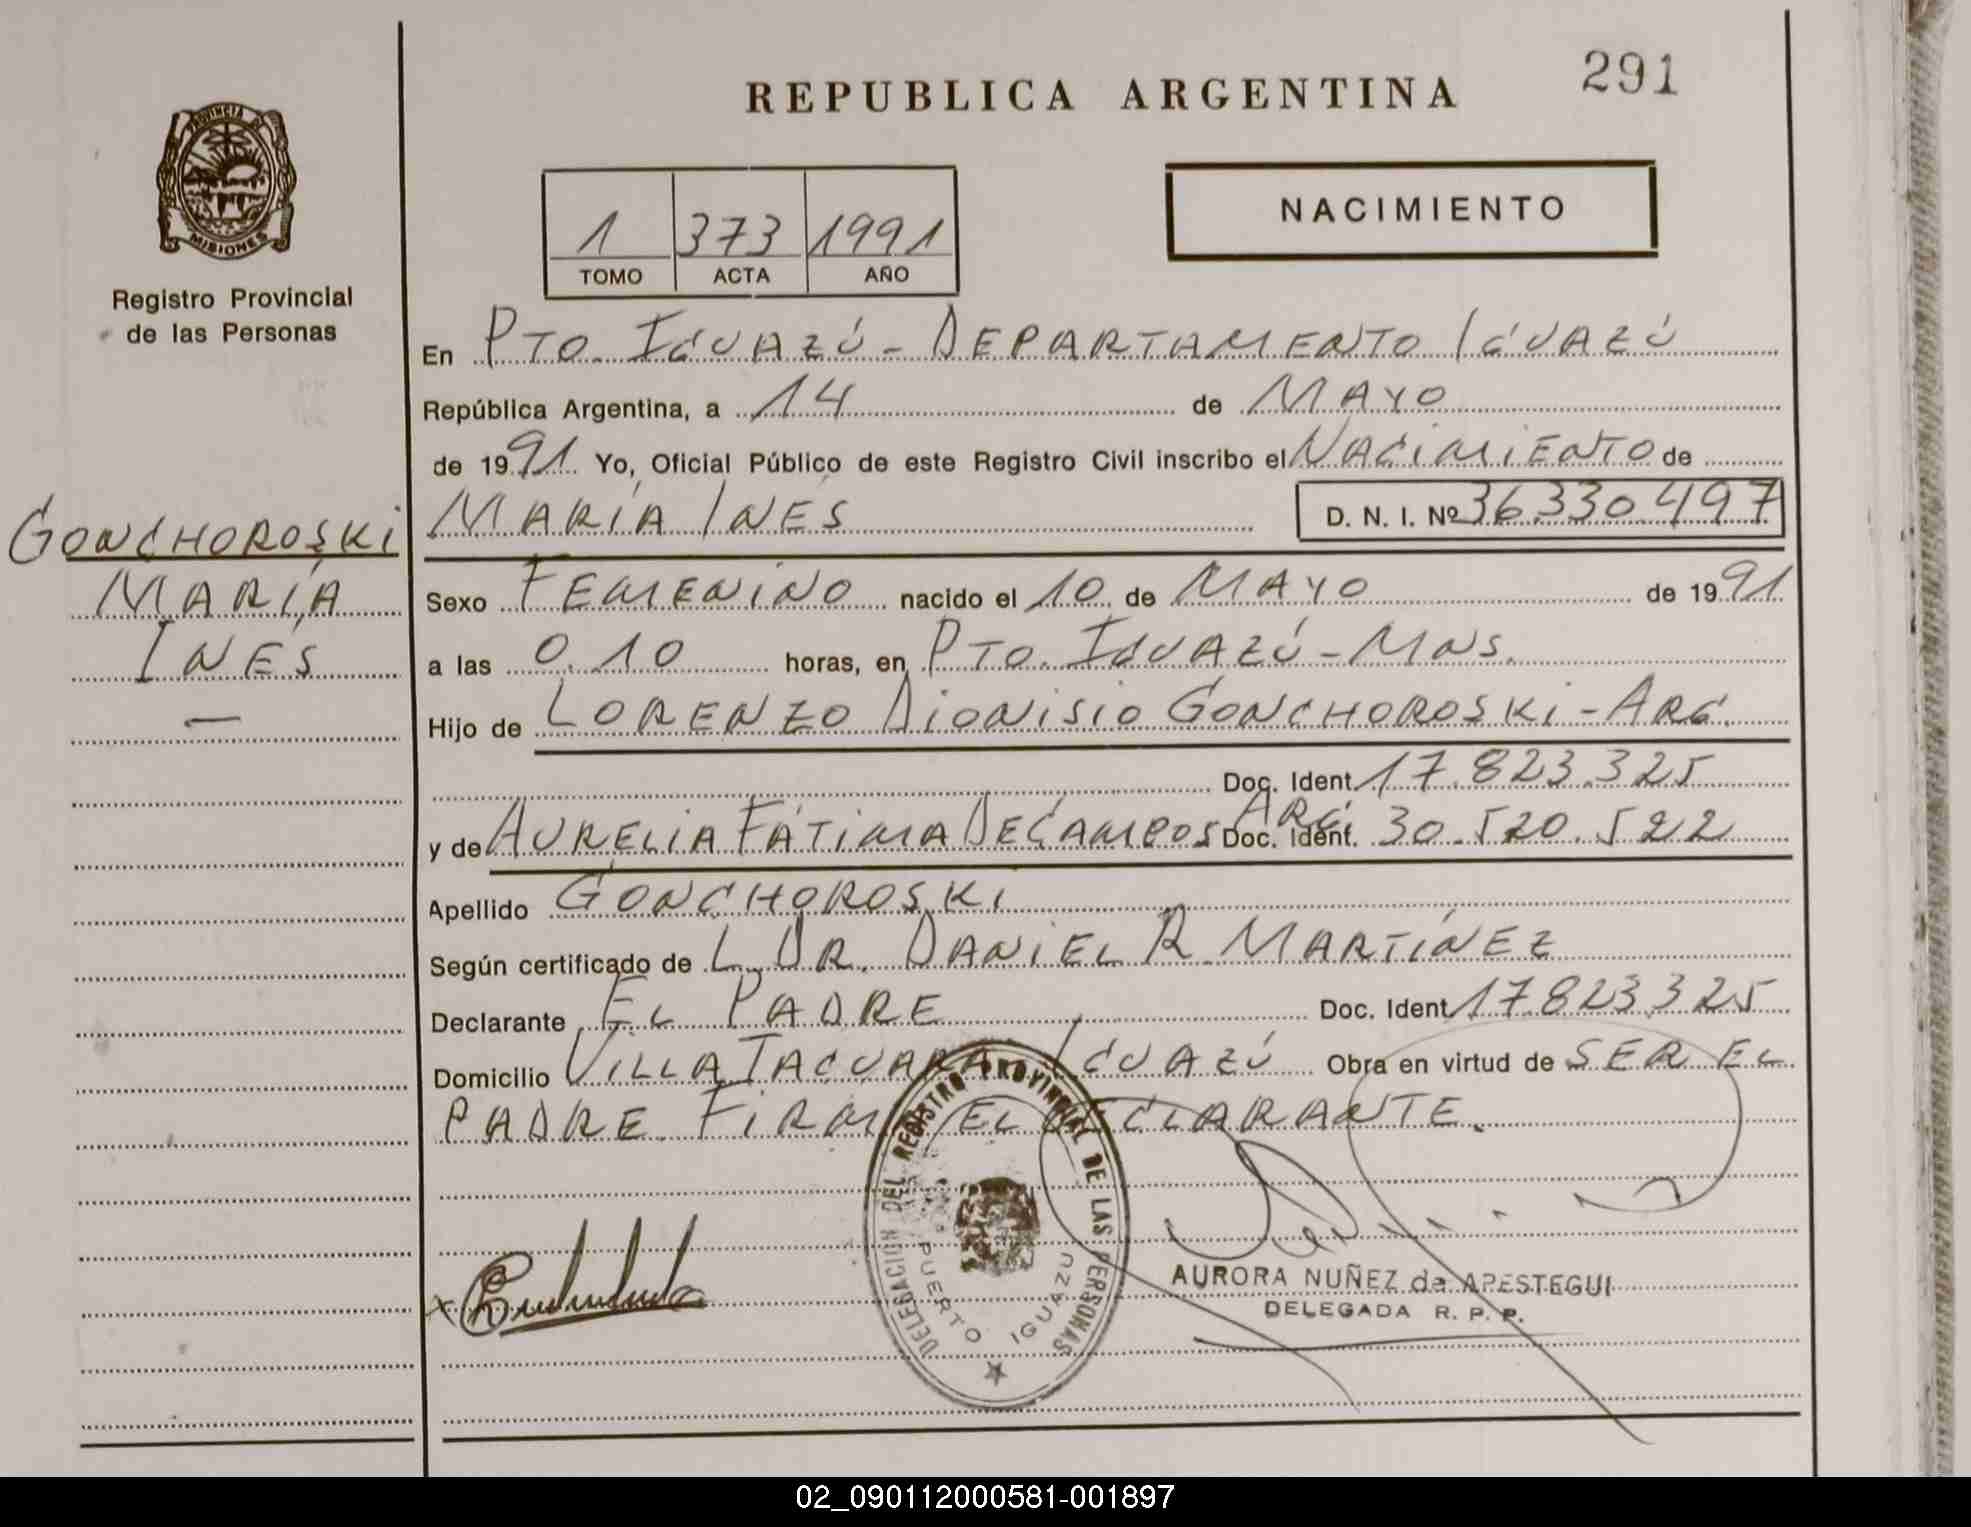 291
REPUBLICA ARGENTINA
PROVINCIA DE
MISIONES
Registro Provincial
de las Personas
NACIMIENTO
1 373 1991
TOMO ACTA AÑO
En PTO. IGUAZÚ - DEPARTAMENTO IGUAZÚ
República Argentina, a 14 de MAYO
de 1991 Yo, Oficial Público de este Registro Civil inscribo el NACIMIENTO de
MARÍA INÉS D. N. I. Nº 36.330.497
GONCHOROSKI
MARÍA
INÉS
—
Sexo FEMENINO nacido el 10 de MAYO de 1991
a las 0.10 horas, en PTO. IGUAZÚ - MNS.
Hijo de LORENZO DIONISIO GONCHOROSKI - ARG.
Doc. Ident. 17.823.325
y de AURELIA FÁTIMA DE CAMPOS ARG. Doc. Ident. 30.520.522
Apellido GONCHOROSKI
Según certificado de L. DR. DANIEL R. MARTÍNEZ
Declarante EL PADRE Doc. Ident. 17.823.325
Domicilio VILLA TACUARA IGUAZÚ Obra en virtud de SER EL
PADRE. FIRMA EL DECLARANTE.
DELEGACION DEL REGISTRO PROVINCIAL DE LAS PERSONAS
PUERTO IGUAZU
AURORA NUÑEZ de APESTEGUI
DELEGADA R. P. P.
02_090112000581-001897